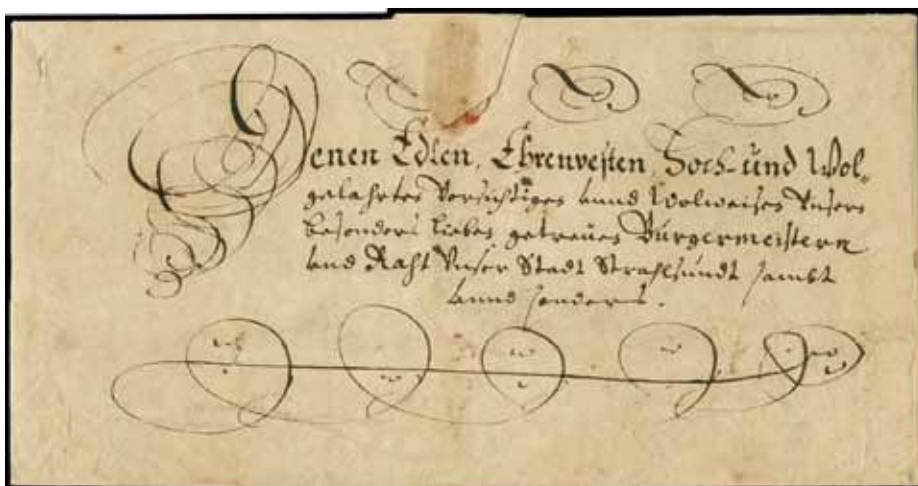 Denen Edlen, Ehrenvesten, Hoch- und Wol-
gelahrten Vorsichtigen unnd Wolweisen Unsern
besonders lieben getreuen Bürgermeistern
und Raht Unser Stadt Strahlsundt sambt
unnd sonders.